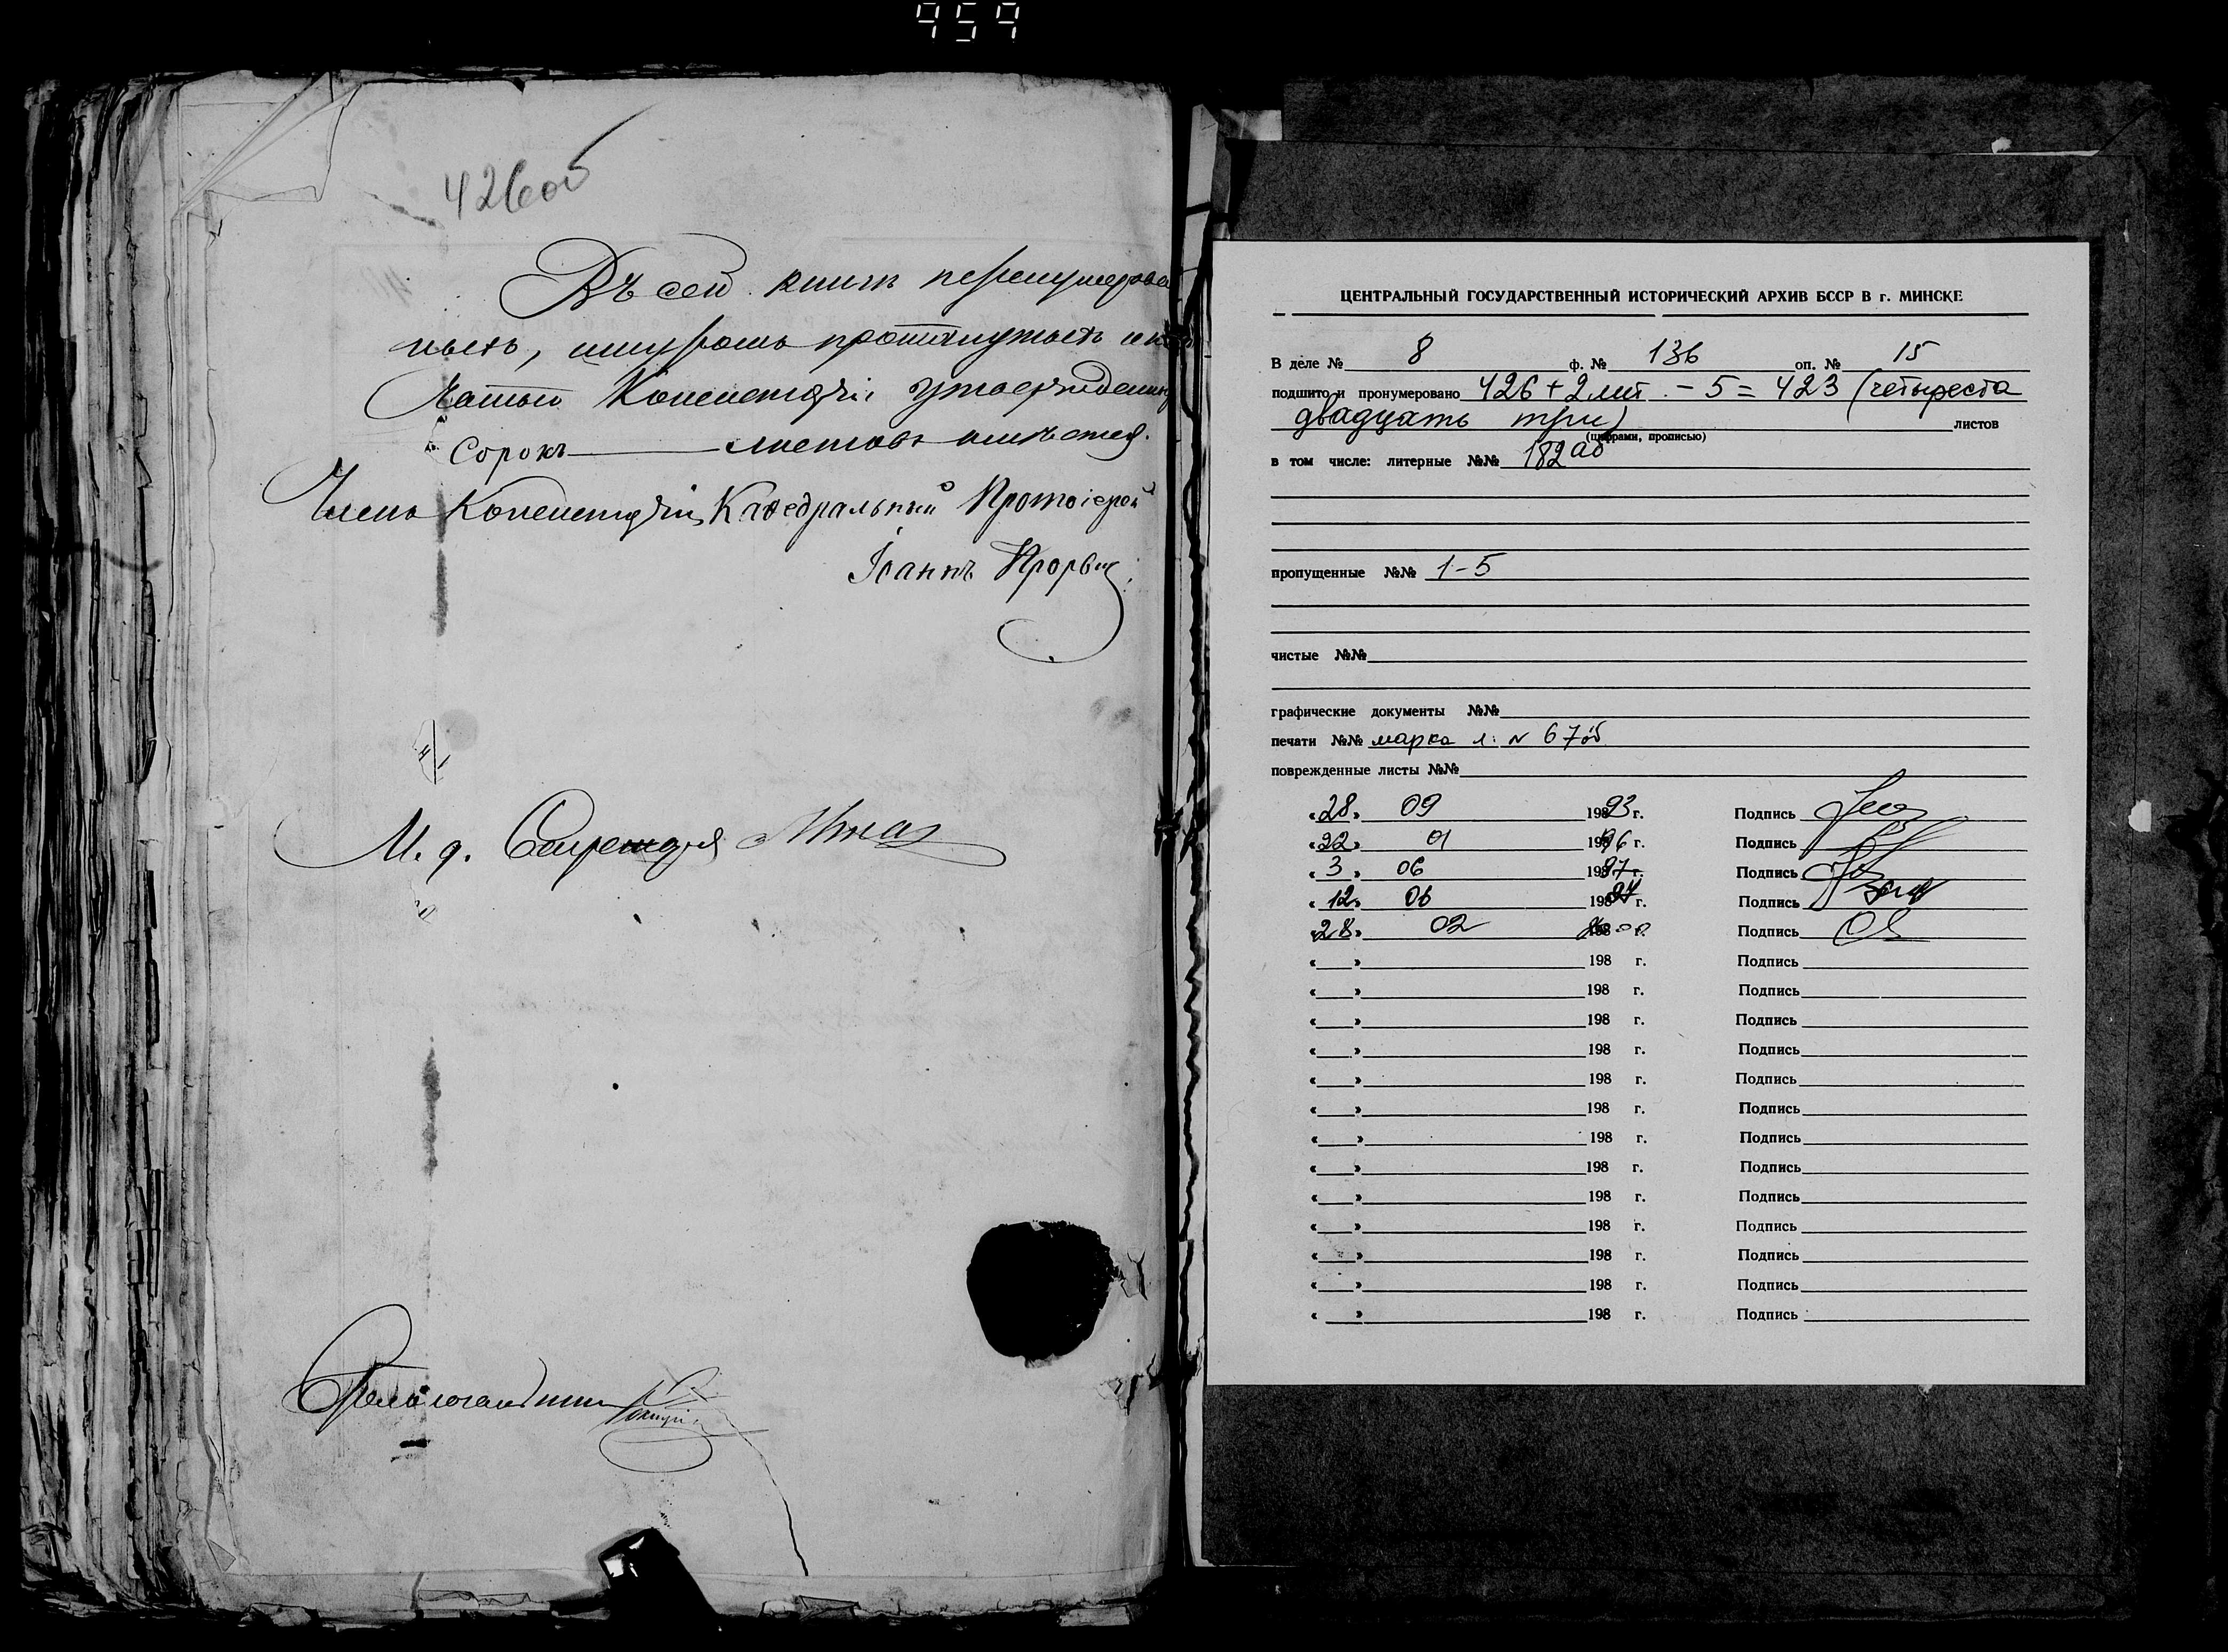 959
426об
Въ сей книгѣ перенумерован
ныхъ, шнуромъ протянутыхъ и пе
чатью Консисторіи утвержденныхъ
сорокъ листовъ имѣется.
Членъ Консисторіи, Каѳедральный Протоіерей
Іоаннъ
И. д. Секретаря
ЦЕНТРАЛЬНЫЙ ГОСУДАРСТВЕННЫЙ ИСТОРИЧЕСКИЙ АРХИВ БССР В г. МИНСКЕ
В деле № 8 ф. № 136 оп. № 15
подшито и пронумеровано 426 + 2 лит. - 5 = 423 (четыреста
двадцать три) листов
(цифрами, прописью)
в том числе: литерные №№ 182 аб
пропущенные №№ 1-5
чистые №№
графические документы №№
печати №№ марка л. N 67об
поврежденные листы №№
«28» 09 1993 г. Подпись
«22» 01 1996 г. Подпись
«3» 06 1997 г. Подпись
«12» 06 1997 г. Подпись
«28» 02 2000 г. Подпись
« » 198 г. Подпись
« » 198 г. Подпись
« » 198 г. Подпись
« » 198 г. Подпись
« » 198 г. Подпись
« » 198 г. Подпись
« » 198 г. Подпись
« » 198 г. Подпись
« » 198 г. Подпись
« » 198 г. Подпись
« » 198 г. Подпись
« » 198 г. Подпись
« » 198 г. Подпись